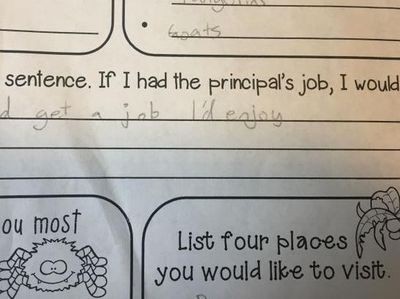 Goats
sentence. If I had the principal's job, I would
d get a job I'd enjoy
ou most
List four places
you would like to visit.